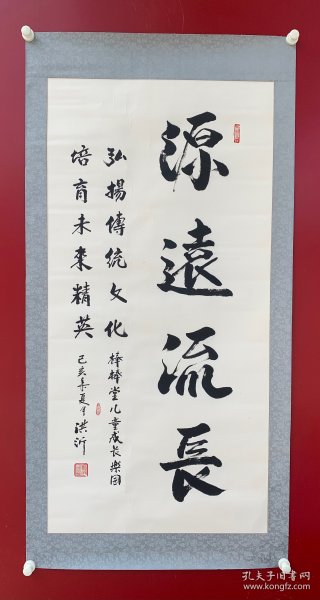 源遠流長
弘揚傳統文化
棒棒堂儿童成长樂园
培育未来精英
己亥年夏月洪沂
孔夫子旧书网
www.kongfz.com